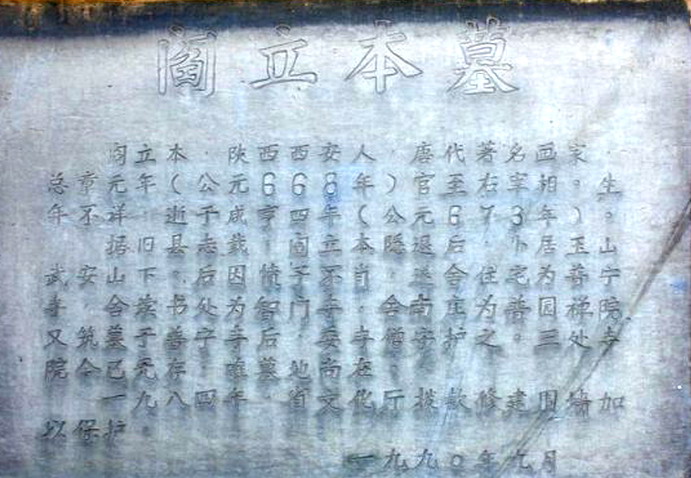 阎立本墓
阎立本，陕西西安人，唐代著名画家，
总章元年（公元668年）官至右宰相。生
年不祥，逝于咸亨四年（公元673年）。
据旧县志载，阎立本隐退后，卜居玉山
武安山下。后因愤子不肖，遂舍住宅为普宁
寺，舍读书处为智门寺，舍南庄为普园禅院，
又筑墓于普宁寺后，委寺僧守护之。三处寺
院今已无存，唯墓地尚在。
一九八四年，省文化厅拨款修建围墙加
以保护。
一九九〇年九月